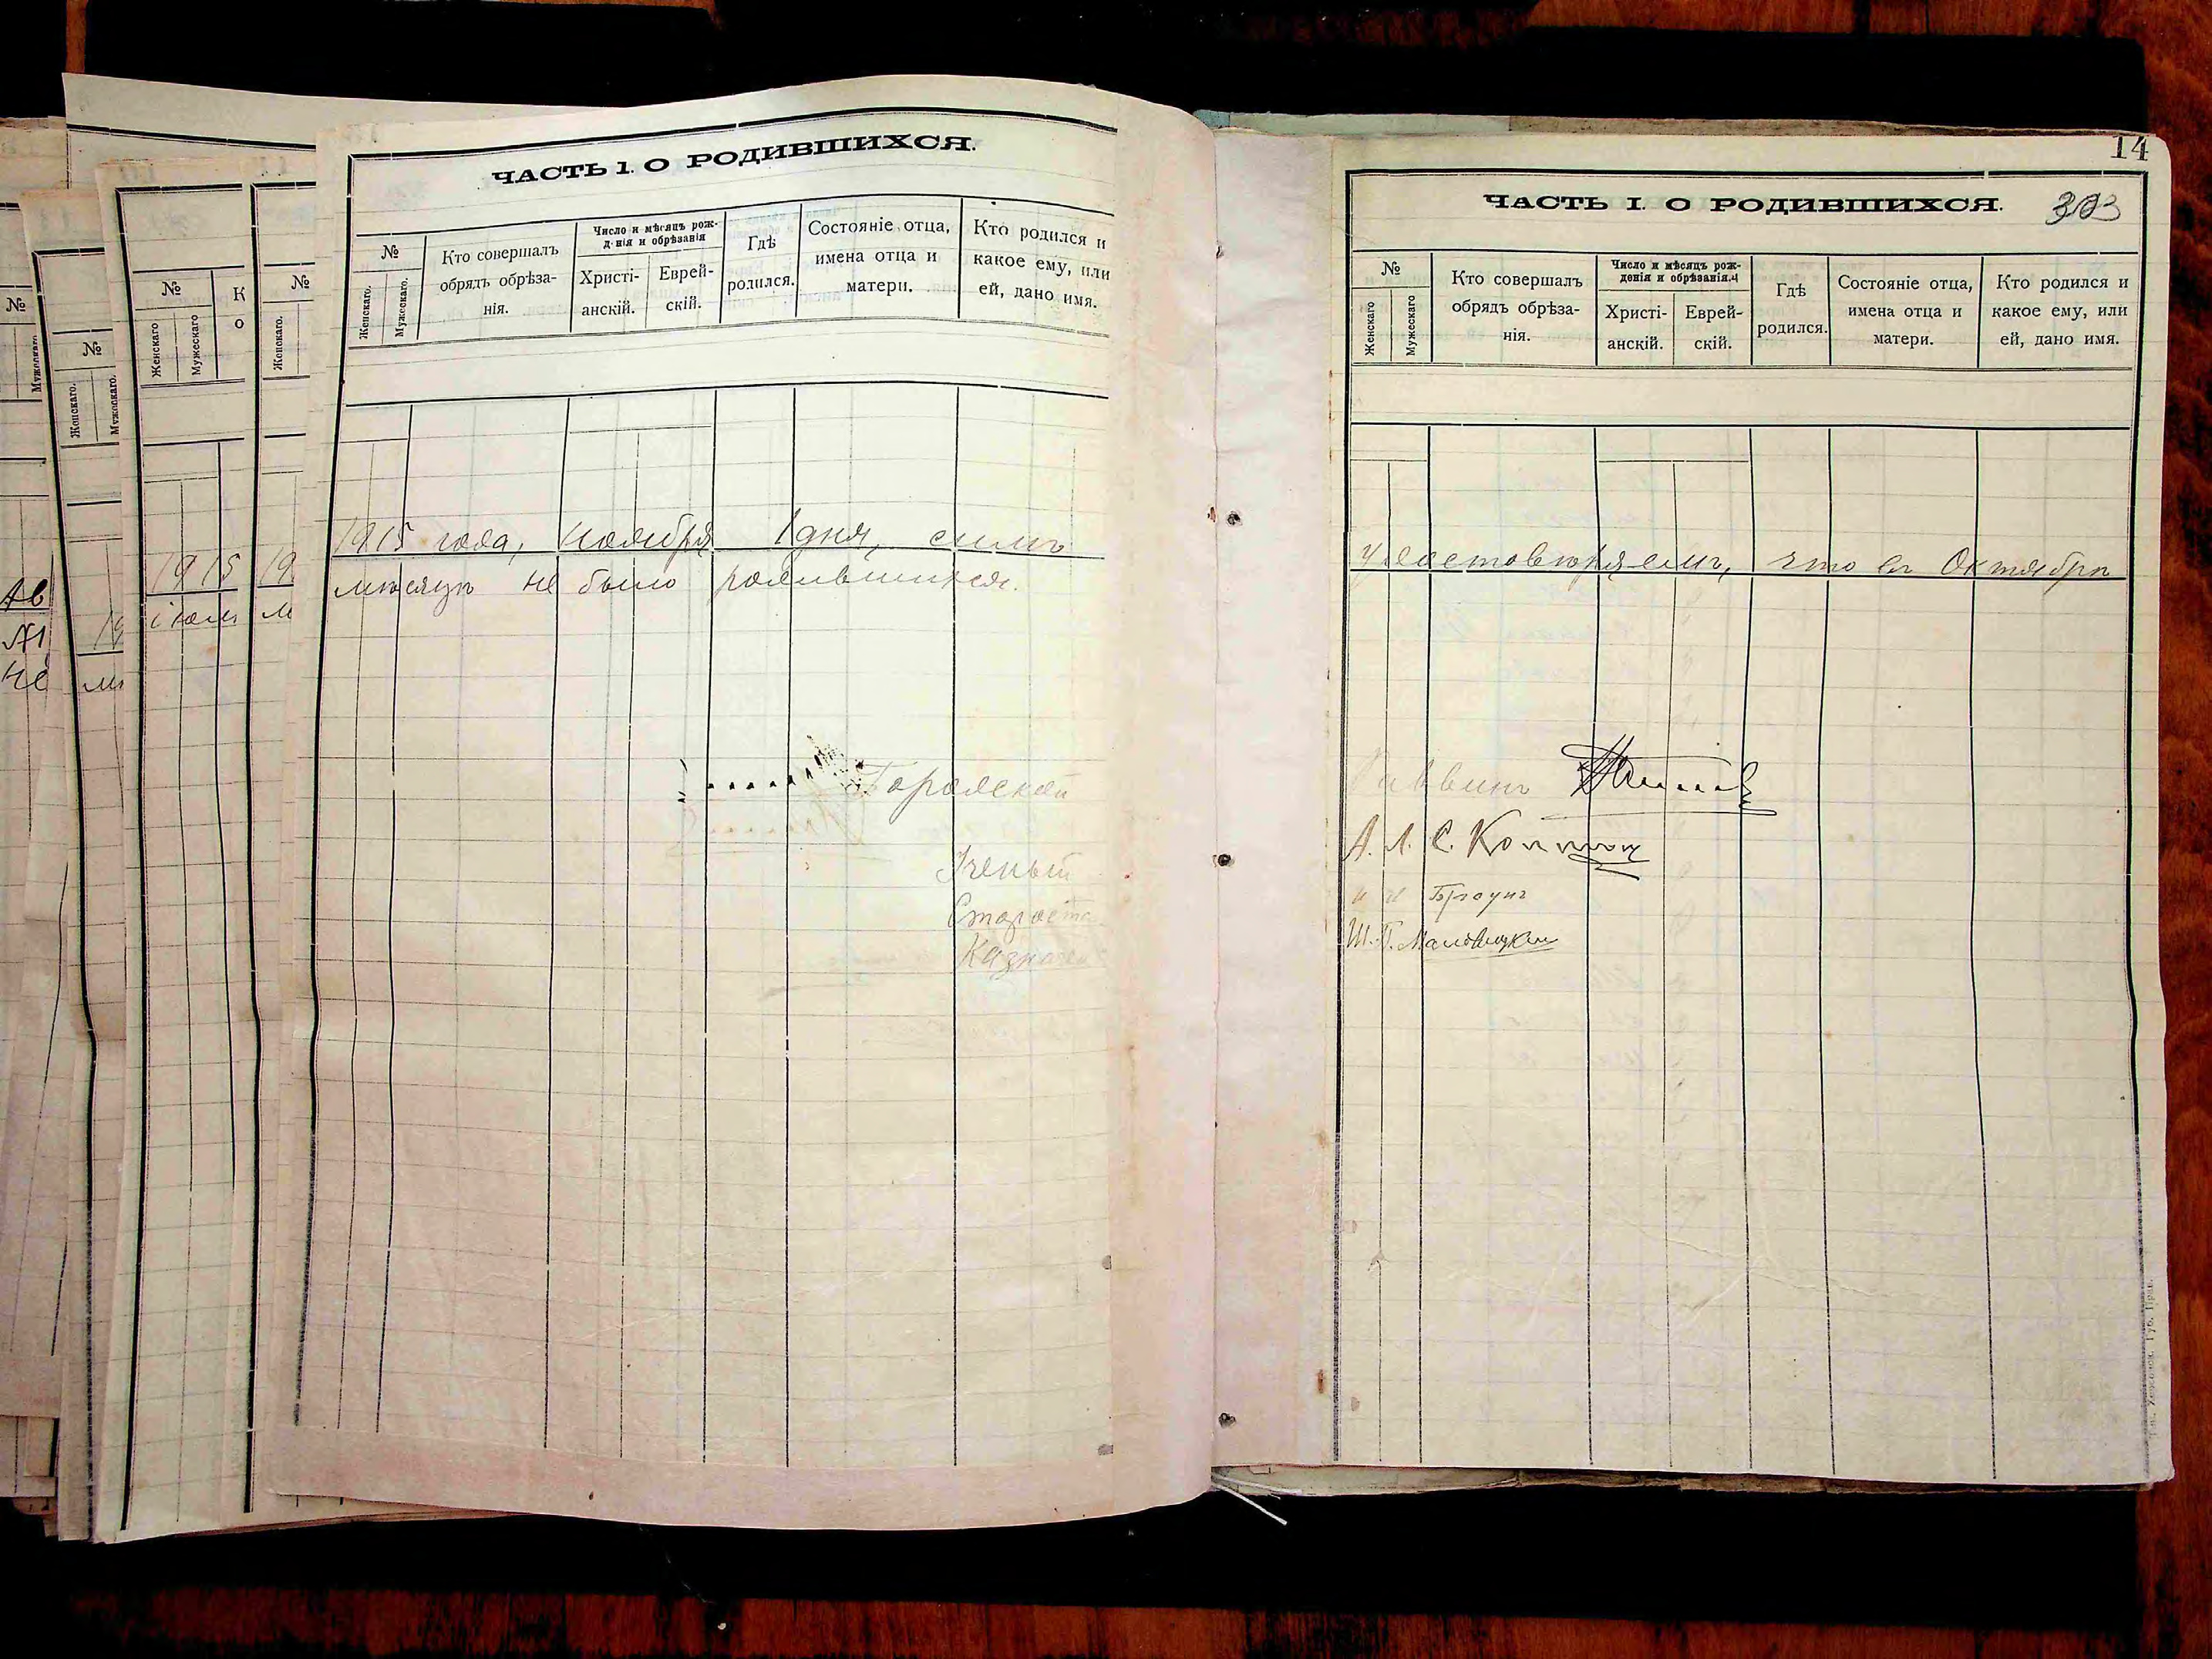 ЧАСТЬ 1. О РОДИВШИХСЯ.
№
Женскаго.
Мужескаго.
Кто совершалъ
обрядъ обрѣза-
нія.
Число и мѣсяцъ рож-
д нія и обрѣзанія
Христі-
анскій.
Еврей-
скій.
Гдѣ
родился.
Состояніе отца,
имена отца и
матери.
Кто родился и
какое ему, или
ей, дано имя.
1915 года, ноября 1 дня, симъ
мѣсяцѣ не было родившихся.
Городской
Ученый
Староста
Казначей
№
Женскаго.
Мужескаго.
№
Женскаго
Мужескаго
К
о
1915
№
Женскаго.
19
м
№
Мужескаго.
Ав
не
14
ЧАСТЬ I. О РОДИВШИХСЯ.
303
№
Женскаго
Мужескаго
Кто совершалъ
обрядъ обрѣза-
нія.
Число и мѣсяцъ рож-
денія и обрѣзанія.
Христі-
анскій.
Еврей-
скій.
Гдѣ
родился.
Состояніе отца,
имена отца и
матери.
Кто родился и
какое ему, или
ей, дано имя.
удостовѣряемъ, что въ Октябрѣ
Раввинъ
А. Л. С.
Броунъ
Ш. П.